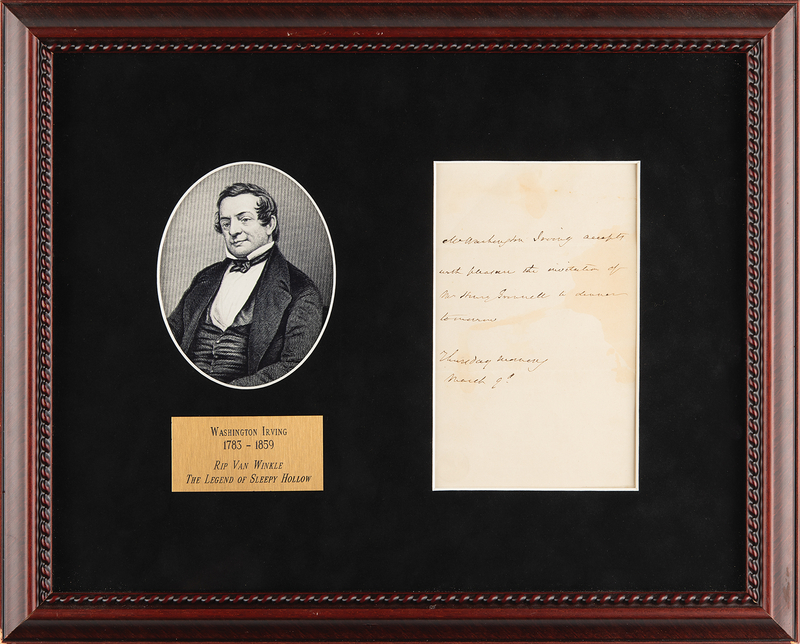 Washington Irving
1783 – 1859
Rip Van Winkle
The Legend of Sleepy Hollow
Mr Washington Irving accepts
with pleasure the invitation of
Mr Henry Grinnell to dinner
tomorrow
Thursday morning
March 9th